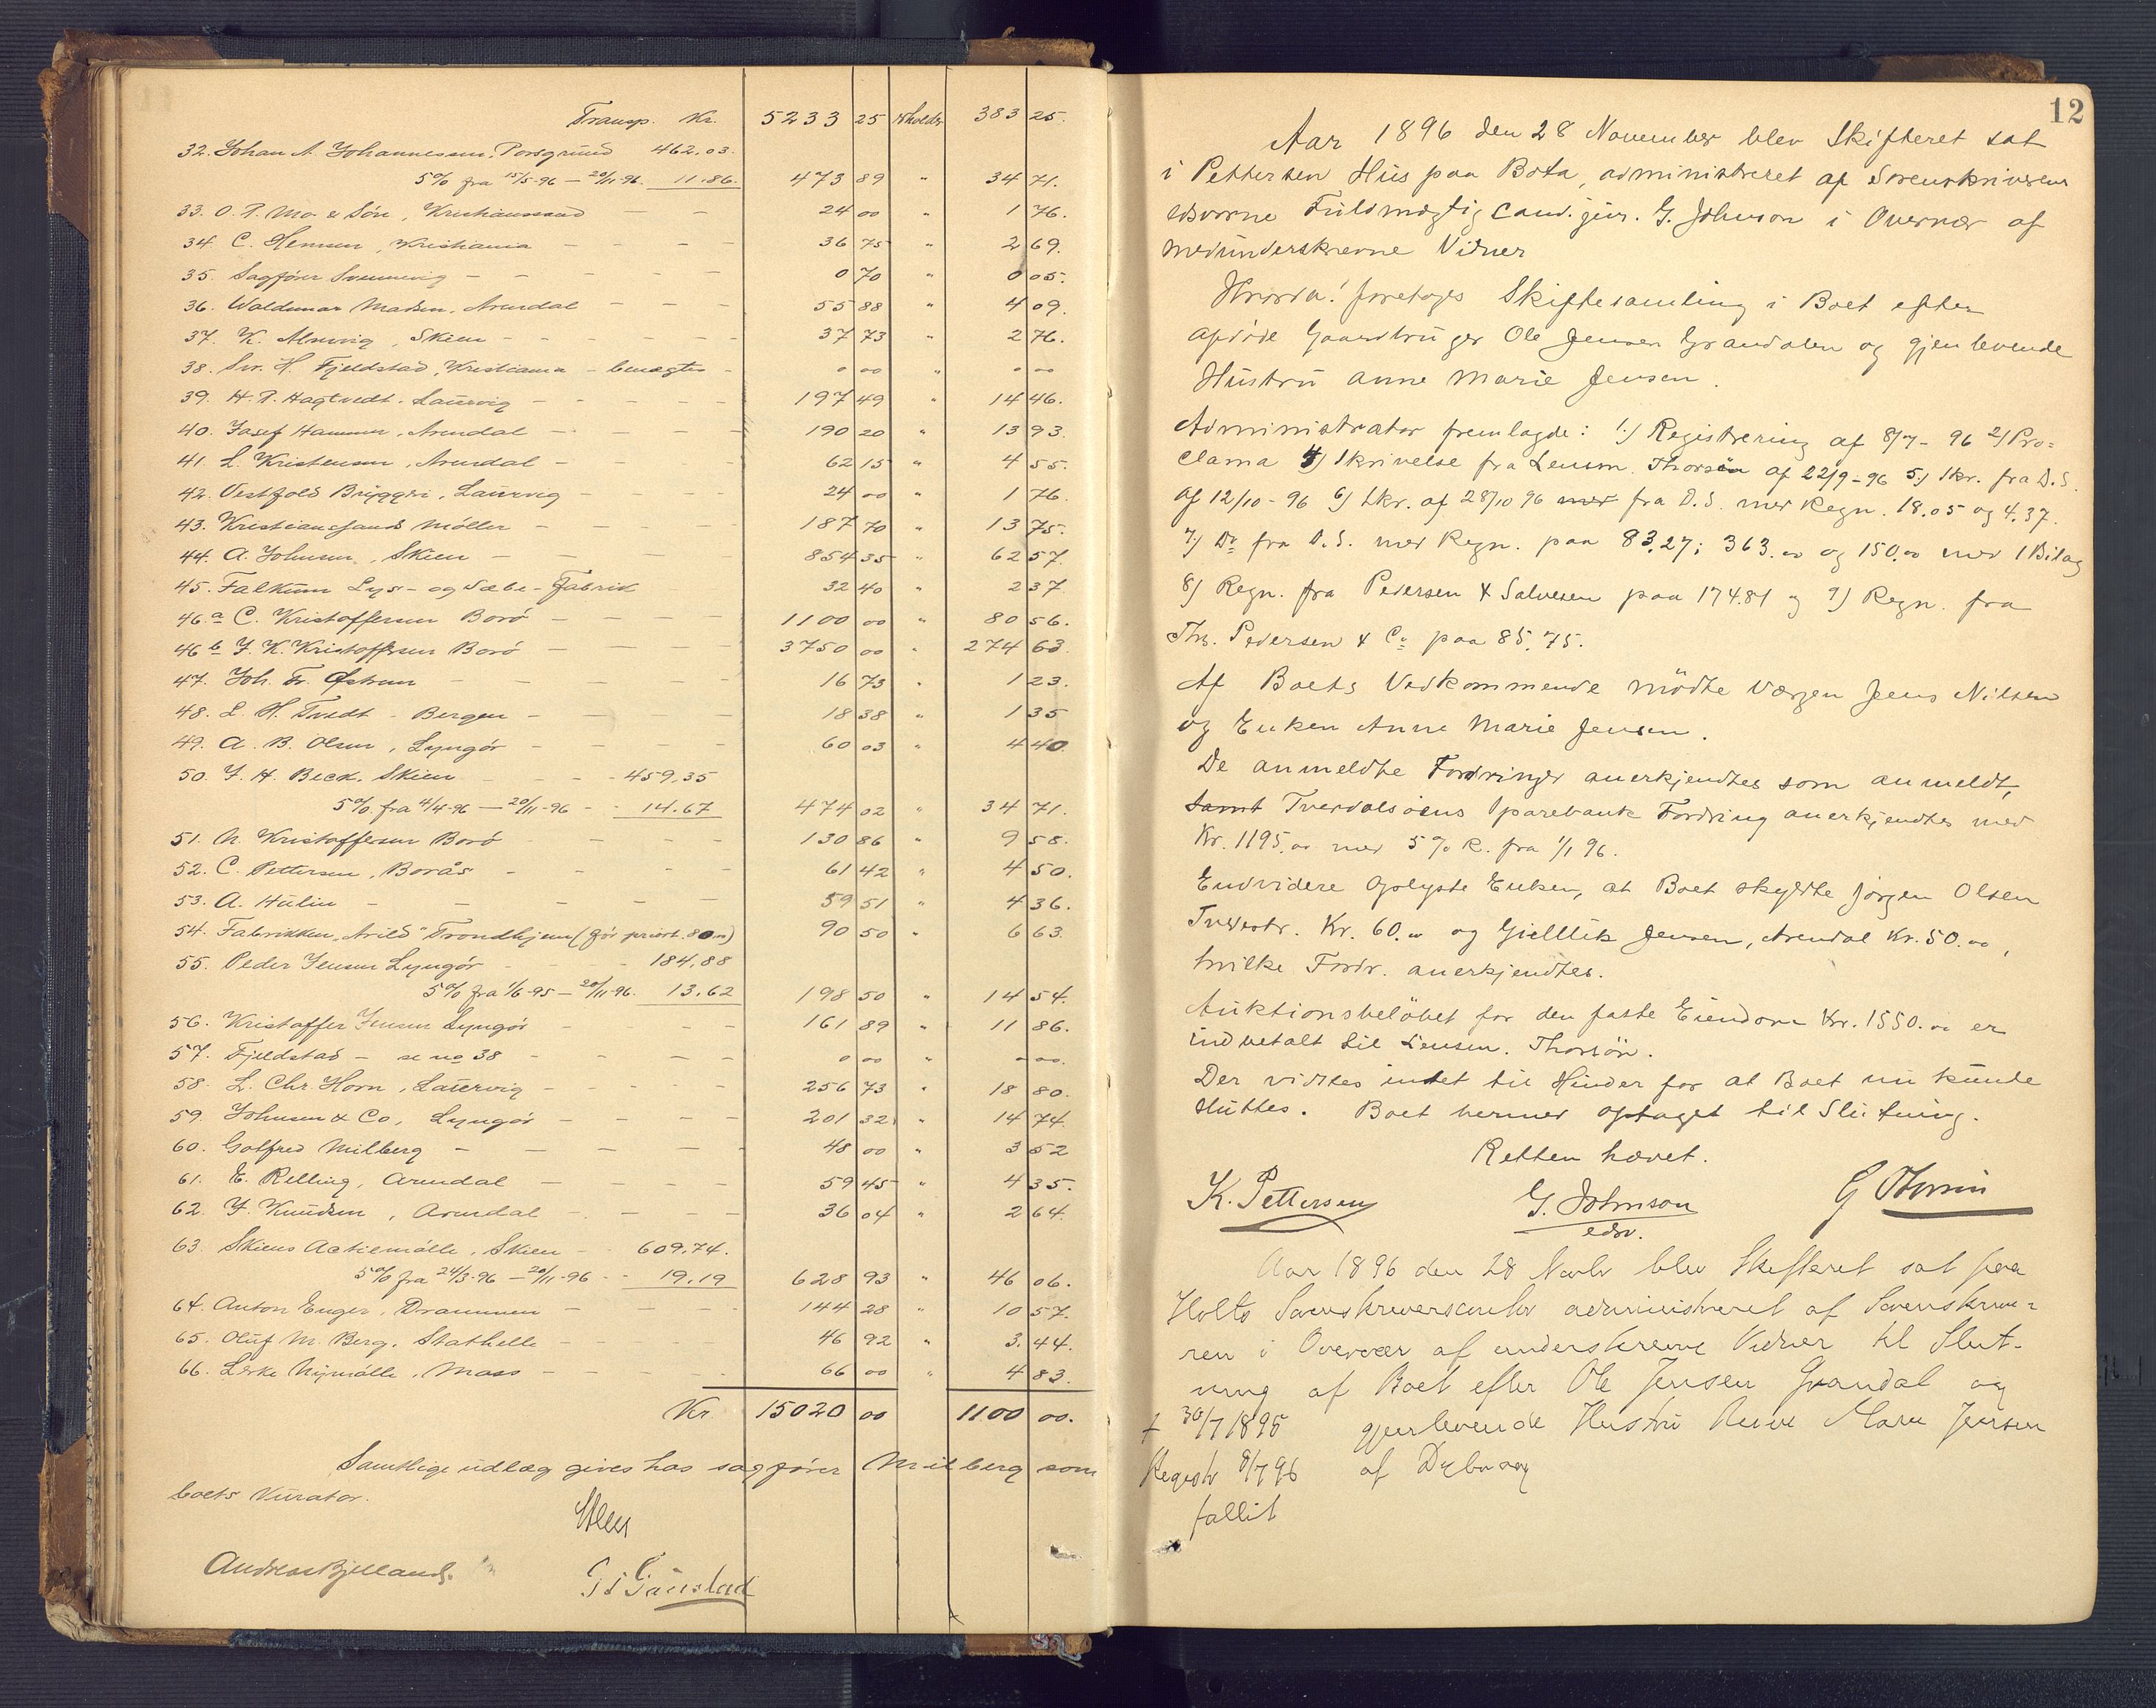 Transp. Kr. 5233 25 erholder 383 25.
32. Johan A. Johannessen, Porsgrund 462.03.
5% fra 15/5-96 — 20/11-96. 11.86. 473 89 " 34 71.
33. O. P. Mo & Sön, Kristianssand — — 24 00 " 1 76.
34. C. Hensen, Kristiania — — — 36 75 " 2 69.
35. Sagförer Svennevig — — — — 0 70 " 0 05.
36. Waldemar Madsen, Arendal — — — 55 88 " 4 09.
37. K. Almvig, Skien — — — — 37 73 " 2 76.
38. Svr. H. Fjeldstad, Kristiania — benægtes — 0 00 " 0 00
39. H. P. Hagtvedt. Laurvig — — — — 197 49 " 14 46.
40. Josef Hammer, Arendal — — — — 190 20 " 13 93.
41. L. Kristensen, Arendal — — — — 62 15 " 4 55.
42. Vestfold Bryggeri, Laurvig — — — — 24 00 " 1 76.
43. Kristianssands Møller — — — — 187 70 " 13 75.
44. A. Johnsen, Skien — — — 854 35 " 62 57.
45. Falkum Lys- og Sæbe-Fabrik 32 40 " 2 37
46 a C. Kristoffersen Borö — — — — 1100 00 " 80 56.
46 b J. K. Kristoffersen Borö — — — — 3750 00 " 274 63.
47. Joh. Fr. Østrem — — — — 16 73 " 1 23.
48. L. H. Tvedt — Bergen — — — — 18 38 " 1 35
49. A. B. Olsen, Lyngör — — — — 60 03 " 4 40.
50. J. H. Beck. Skien — — — 459.35
5% fra 4/4-96 — 20/11-96 — 14.67 474 02 " 34 71.
51. N. Kristoffersen Borö — — — 130 86 " 9 58.
52. C. Pettersen, Borås — — — 61 42 " 4 50.
53. A. Hulin — — — — — 59 51 " 4 36.
54. Fabrikken "Arild" Trondhjem (för priorit. 80.00) 90 50 " 6 63.
55. Peder Jensen Lyngör — — 184.88
5% fra 1/6-95 — 20/11-96. 13.62 198 50 " 14 54.
56. Kristoffer Jensen Lyngör — — — 161 89 " 11 86.
57. Fjeldstad — se no 38 — — — 0 00 " 0 00.
58. L. Chr. Horn, Laurvig — — — — 256 73 " 18 80.
59. Johnsen & Co, Lyngör — — — — 201 32 " 14 74.
60. Gotfred Milberg — — — — — 48 00 " 3 52
61. E. Relling, Arendal — — — — 59 45 " 4 35.
62. J. Knudsen, Arendal — — — — 36 04 " 2 64.
63. Skiens Actiemölle, Skien — 609.74.
5% fra 24/3-96 — 20/11-96 — 19.19 628 93 " 46 06.
64. Anton Enger, Drammen — — — 144 28 " 10 57.
65. Oluf M. Berg, Stathelle — — — 46 92 " 3. 44.
66. Leske Nymölle, Moss — — — — 66 00 " 4 83.
Kr 15020 00 1100 00.
Samtlige udlæg gives hos sagförer Milberg som
boets Kurator.
Andreas Bjelland.
12
Aar 1896 den 28 November blev Skifteret sat
i Pettersen Hus paa Bota, administreret af Sorenskriverens
edsvorne Fuldmægtig cand. jur. G. Johnson i Overvær af
medunderskrevne Vidner
Hvorda! foretoges Skiftesamling i Boet efter
afdöde Gaardbruger Ole Jensen Grandalen og gjenlevende
Hustru Anne Marie Jensen.
Administrator fremlagde: 1.) Registrering af 8/7-96 2) Pro-
clama 4) Skrivelse fra Lensm. Thorsön af 22/9-96 5.) Skr. fra D.S.
af 12/10-96 6) Skr. af 28/10 96 med fra D.S. med Regn. 18.05 og 4.37.
7.) Do fra D.S. med Regn. paa 83.27; 363.00 og 150.00 med 1 Bilag
8) Regn. fra Pedersen & Salvesen paa 174.81 og 9) Regn. fra
Ths. Pedersen & Co paa 85.75.
Af Boets Vedkommende mödte Værgen Jens Nilsen
og Enken Anne Marie Jensen.
De anmeldte Fordringer anerkjendtes som anmeldt,
samt Tverdalsöens Sparebanks Fordring anerkjendtes med
Kr. 1195.00 med 5% R. fra 1/1 96.
Endvidere oplyste Enken, at Boet skyldte Jörgen Olsen
Tvedestr. Kr. 60.00 og Jensen, Arendal Kr. 50.00,
hvilke Fordr. anerkjendtes.
Auktionsbelöbet for den faste Eiendom Kr. 1550.00 er
indbetalt til Lensm. Thorsön.
Der vidstes intet til Hinder for at Boet nu kunde
sluttes. Boet hermed optaget til Slutning.
Retten hævet.
K. Pettersen G. Johnson
edsv.
Aar 1896 den 28 Novbr blev Skifteret sat paa
Holts Sorenskrivercontor administreret af Sorenskrive-
ren i Overvær af underskrevne Vidner til Slut-
ning af Boet efter Ole Jensen Grandal og
† 30/7 1895 gjenlevende Hustru Anne Marie Jensen
Registr 8/7 96 af Dybvaag
fallit